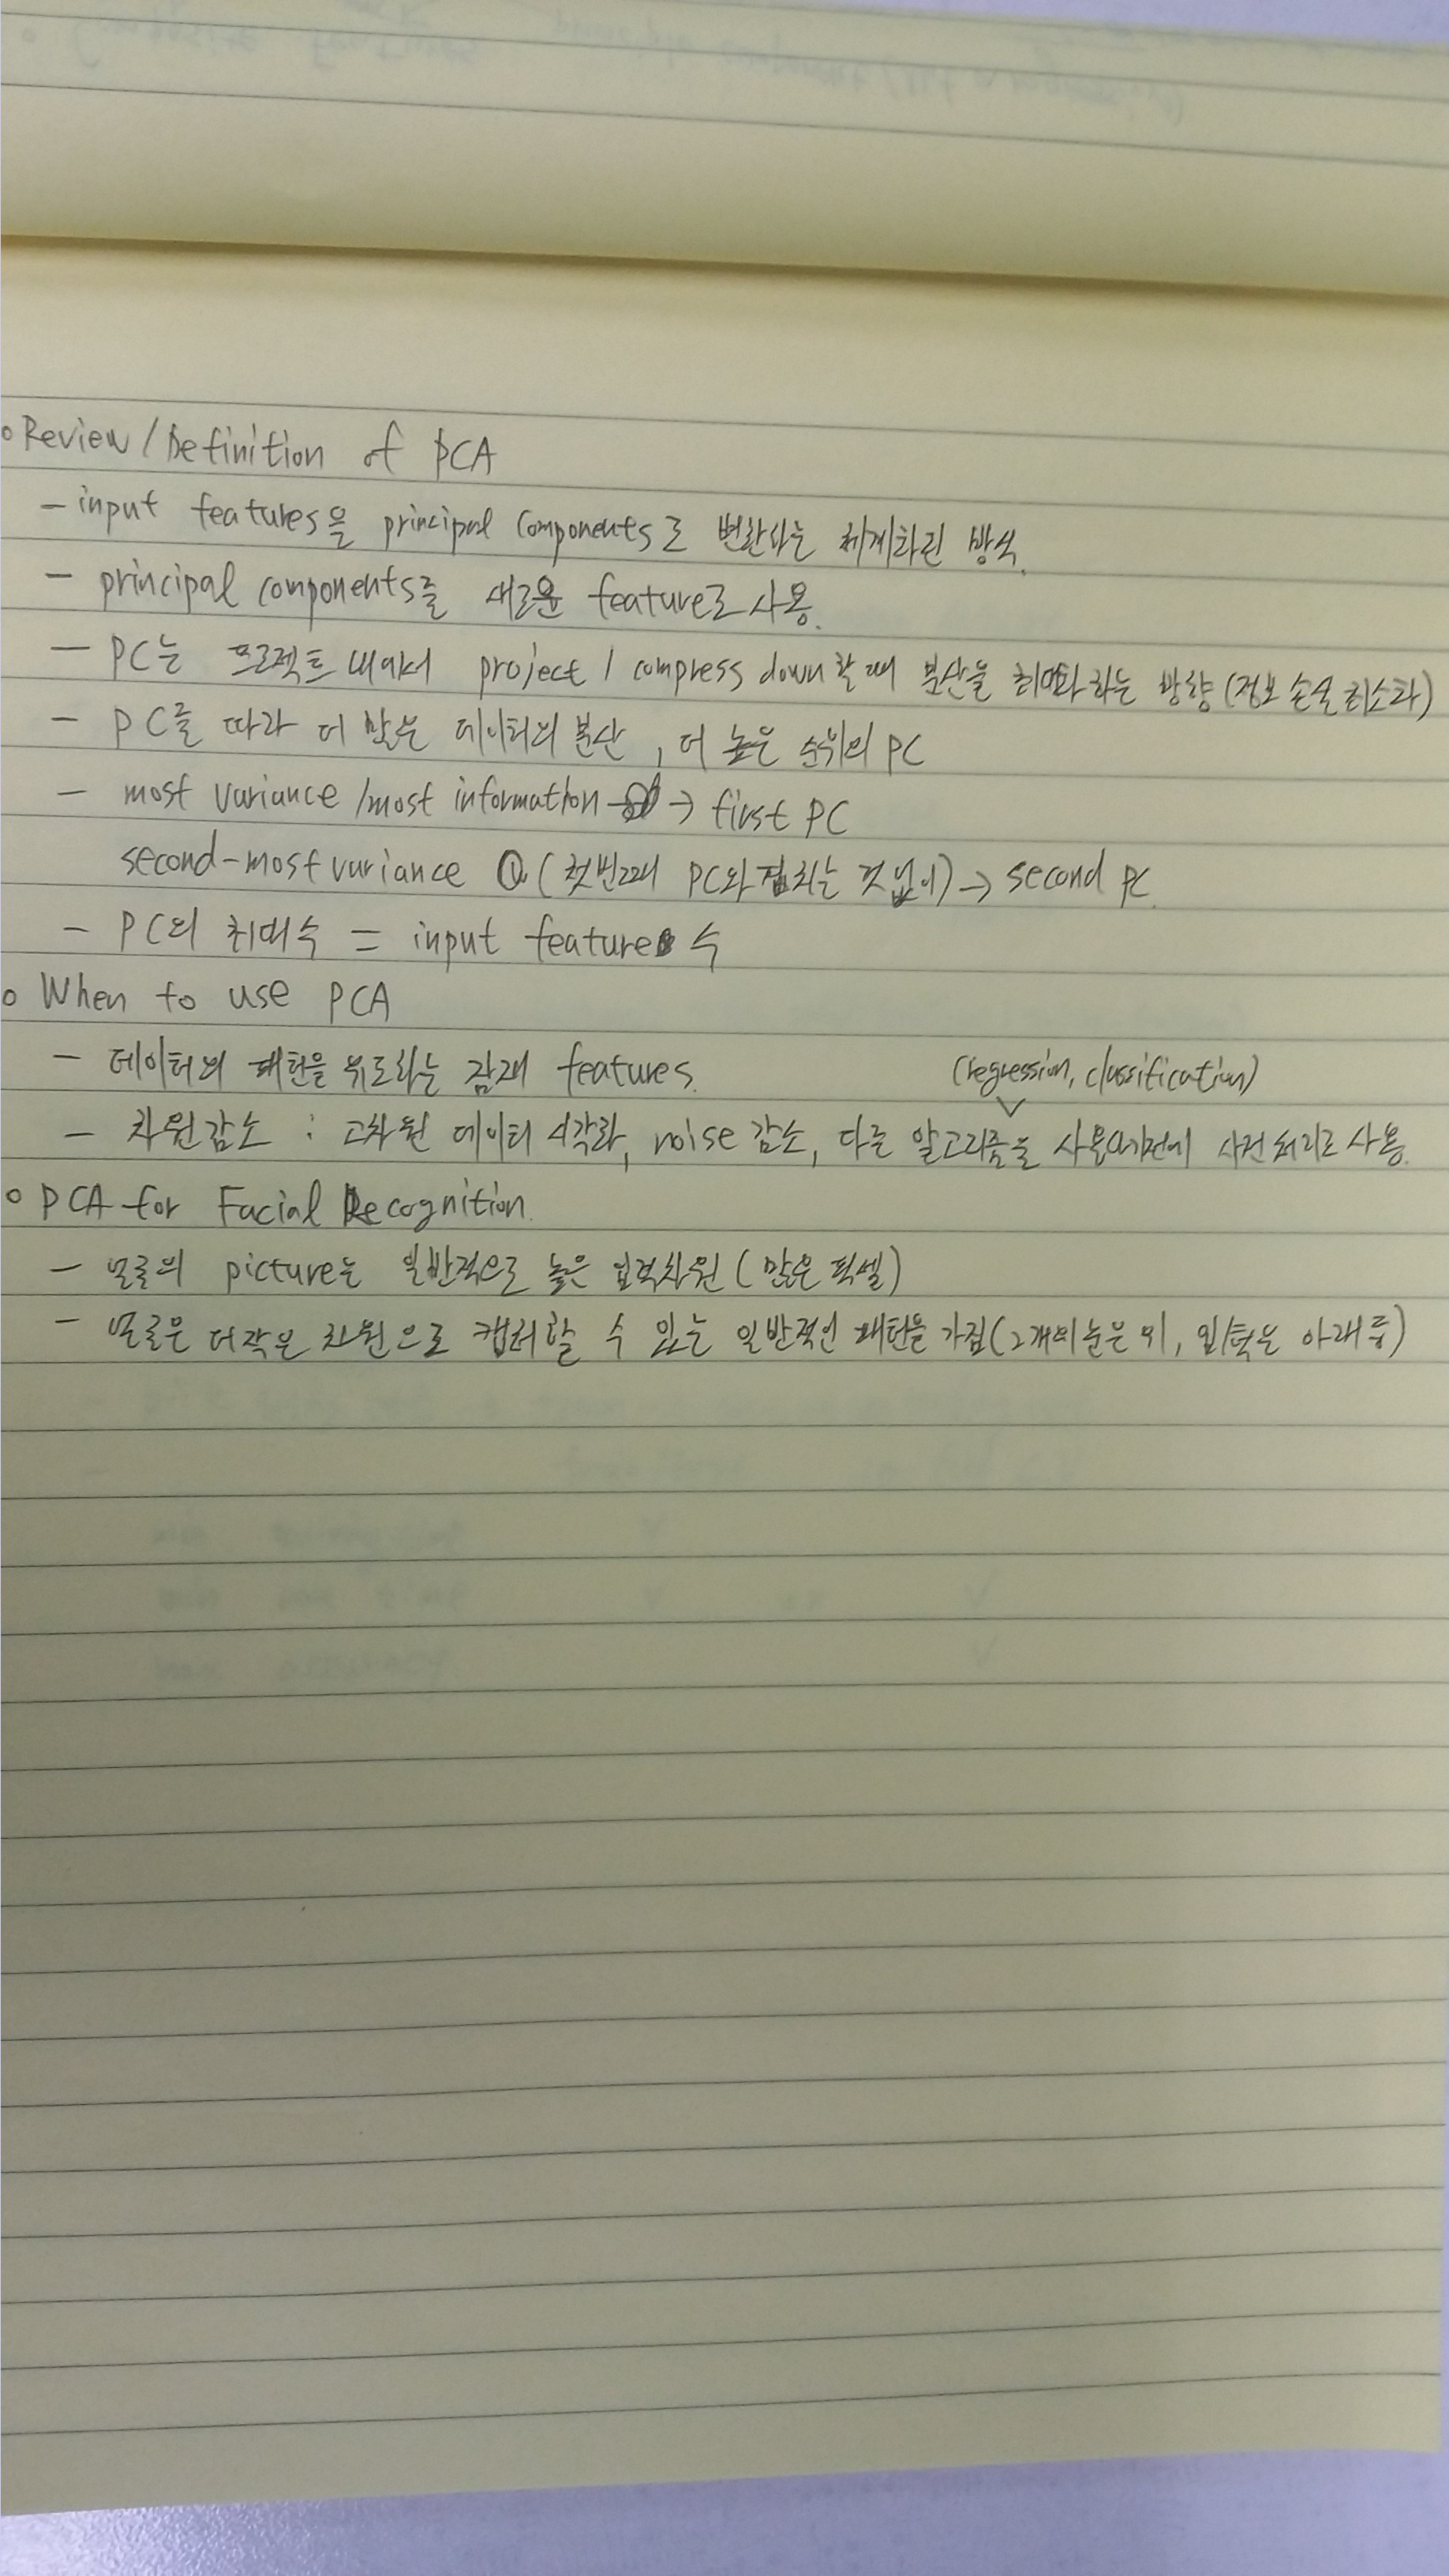 o Review / Definition of PCA
- input features을 principal components로 변환하는 체계화된 방식.
- principal components를 새로운 feature로 사용.
- PC는 프로젝트 내에서 project / compress down할 때 분산을 최대화하는 방향 (정보 손실 최소화)
- PC를 따라 더 많은 데이터의 분산, 더 높은 순위의 PC
- most variance /most information → first PC
second-most variance (첫번째 PC와 겹치는 것 없이) → second PC.
- PC의 최대수 = input feature 수
o When to use PCA
- 데이터의 패턴을 유도하는 잠재 features.
(regression, classification)
- 차원감소 : 고차원 데이터 시각화, noise 감소, 다른 알고리즘을 사용하기전에 사전 처리로 사용.
o PCA for Facial Recognition.
- 얼굴의 picture는 일반적으로 높은 입력차원 (많은 픽셀)
- 얼굴은 더작은 차원으로 캡처할 수 있는 일반적인 패턴을 가짐 (2개의 눈은 위, 입/턱은 아래 등)